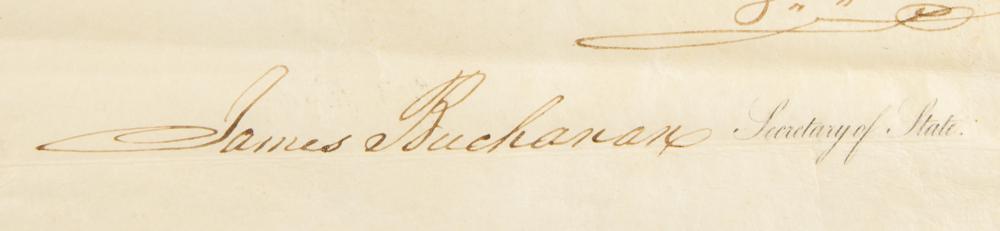 James Buchanan Secretary of State.